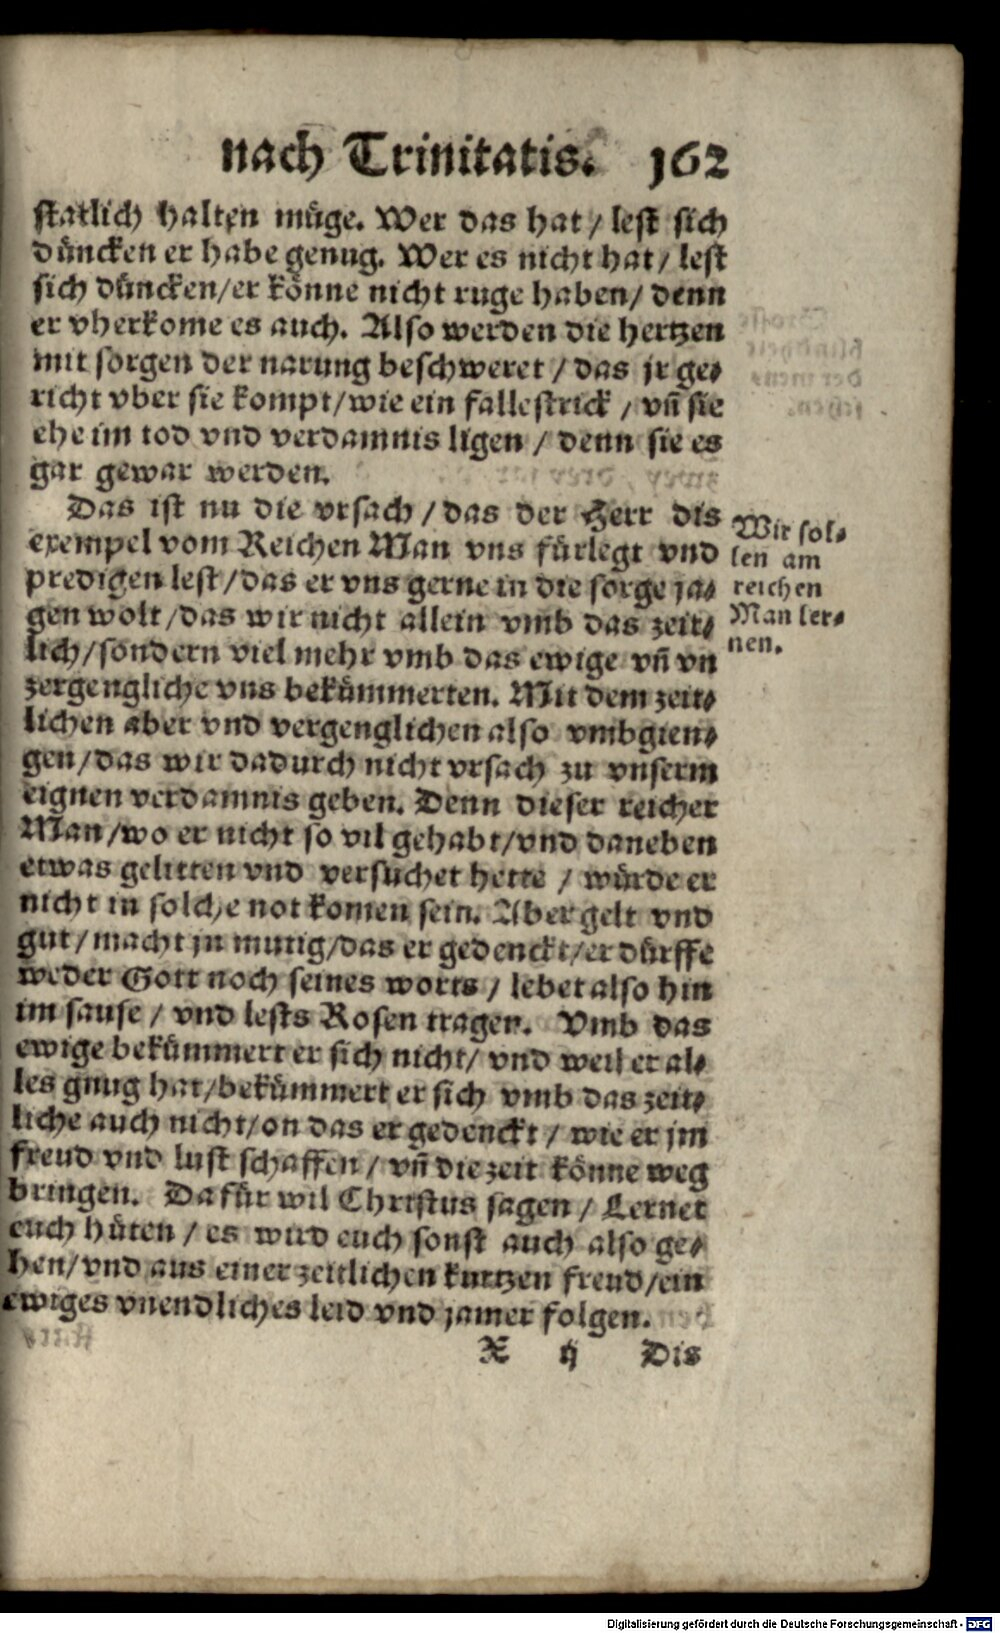 nach Trinitatis. 162
statlich halten müge. Wer das hat / lest sich
düncken er habe genug. Wer es nicht hat / lest
sich düncken / er könne nicht ruge haben / denn
er vberkome es auch. Also werden die hertzen
mit sorgen der narung beschweret / das jr ge⸗
richt vber sie kompt / wie ein fallestrick / vñ sie
ehe im tod vnd verdamnis ligen / denn sie es
gar gewar werden.
Das ist nu die vrsach / das der Herr dis
exempel vom Reichen Man vns fürlegt vnd
predigen lest / das er vns gerne in die sorge ja⸗
gen wolt / das wir nicht allein vmb das zeit⸗
lich / sondern viel mehr vmb das ewige vñ vn
zergengliche vns bekümmerten. Mit dem zeit⸗
lichen aber vnd vergenglichen also vmbgien⸗
gen / das wir dadurch nicht vrsach zu vnserm
eignen verdamnis geben. Denn dieser reicher
Man / wo er nicht so vil gehabt / vnd daneben
etwas gelitten vnd versuchet hette / würde er
nicht in solche not komen sein. Aber gelt vnd
gut / macht jn mutig / das er gedenckt / er dürffe
weder Gott noch seines worts / lebet also hin
im sause / vnd lests Rosen tragen. Vmb das
ewige bekümmert er sich nicht / vnd weil er al⸗
les gnug hat / bekümmert er sich vmb das zeit⸗
liche auch nicht / on das er gedenckt / wie er jm
freud vnd lust schaffen / vñ die zeit könne weg
bringen. Dafür wil Christus sagen / Lernet
euch hüten / es wird euch sonst auch also ge⸗
hen / vnd aus einer zeitlichen kurtzen freud / ein
ewiges vnendliches leid vnd jamer folgen.
X ij Dis
Wir sol⸗
len am
reichen
Man ler⸗
nen.
Digitalisierung gefördert durch die Deutsche Forschungsgemeinschaft - DFG